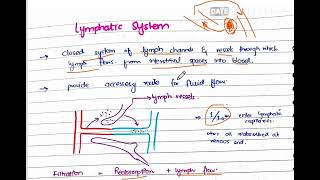 DATE
Lymphatic System
→ closed system of lymph channels & vessels through which
lymph flows from interstitial spaces into blood.
→ provide accessory route for fluid flow.
→ lymph vessels.
1/10th enter lymphatic
capillaries
other 9 reabsorbed at
venous end.
Filtration = Reabsorption + lymph flow.